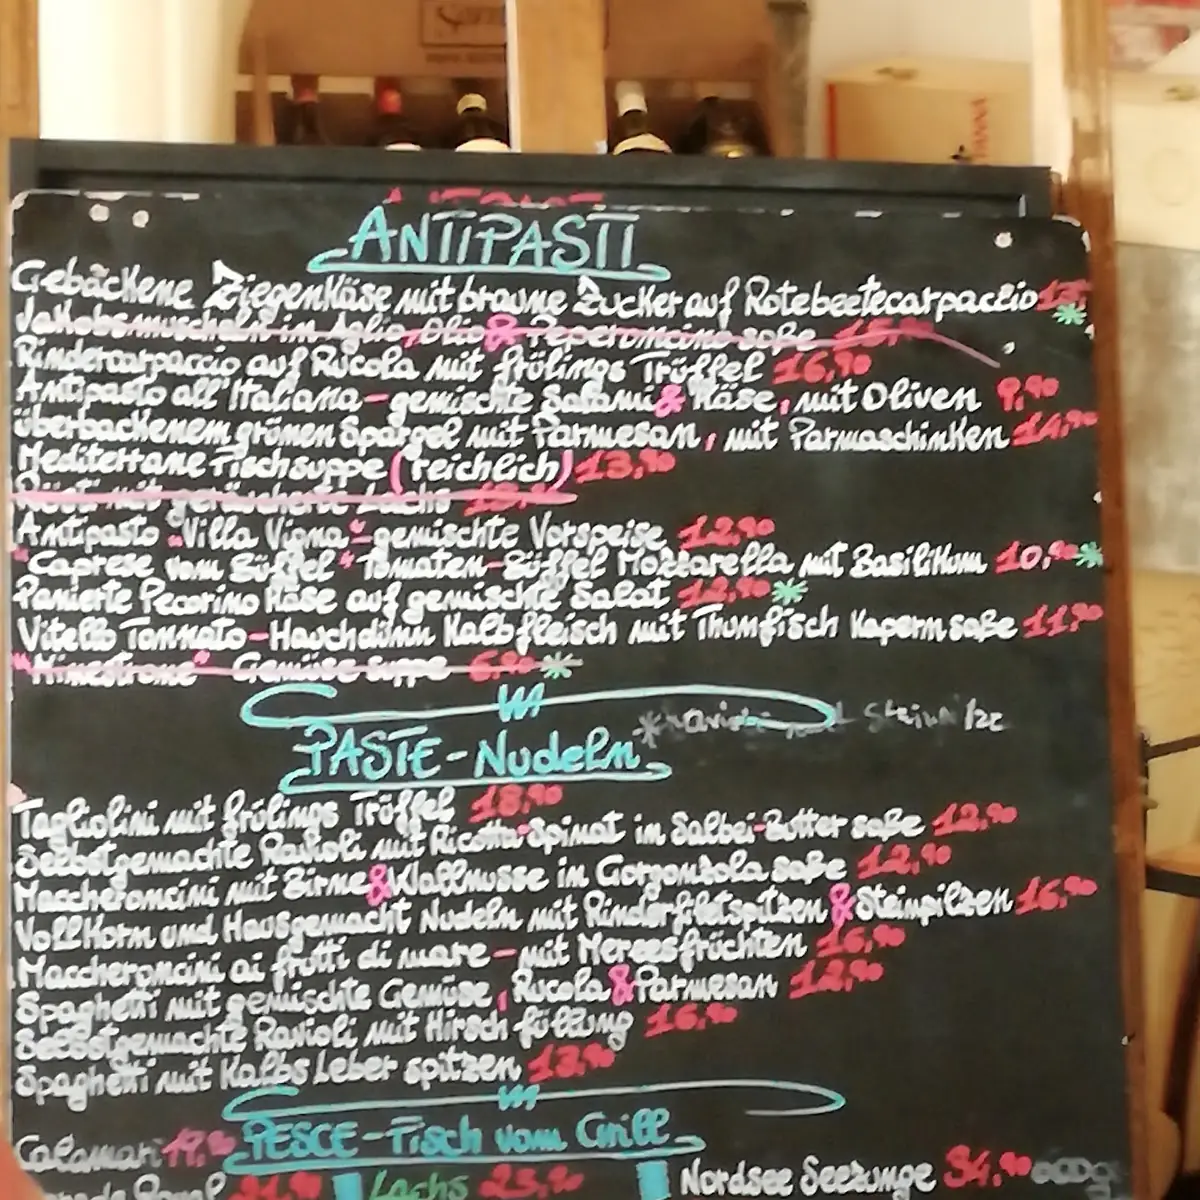 ANTIPASTI
Gebäckene Ziegenkäse mit braune Zucker auf Rotebeetecarpaccio
Jakobsmuscheln in Aglio, Olio & Peperoncino soße 15,90
Rindercarpaccio auf Rucola mit frülings Trüffel 16,90
Antipasto all'Italiana - gemischte Salami & Käse, mit Oliven 9,90
überbackenem grünen Spargel mit Parmesan, mit Parmaschinken 14,90
Mediterrane Fischsuppe (reichlich) 13,90
Rösti mit geräucherte Lachs
Antipasto "Villa Vigna" - gemischte Vorspeise 12,90
"Caprese vom Büffel" Tomaten-Büffel Mozzarella mit Basilikum 10,90*
Panierte Pecorino Käse auf gemischte Salat 12,90*
Vitello Tonnato - Hauchdünn Kalbfleisch mit Thunfisch Kapern soße 11,90
"Minestrone" Gemüse suppe 6,90*
PASTE - Nudeln
Tagliolini mit frülings Trüffel 18,90
Selbstgemachte Ravioli mit Ricotta-Spinat in Salbei-Butter soße 12,90
Maccheroncini mit Birne & Wallnusse in Gorgonzola soße 12,90
Vollkorn und Hausgemacht Nudeln mit Rinderfiletspitzen & Steinpilzen 16,90
Maccheroncini ai frutti di mare - mit Meeresfrüchten 16,90
Spaghetti mit gemischte Gemüse, Rucola & Parmesan 12,90
Selbstgemachte Ravioli mit Hirsch füllung 16,90
Spaghetti mit Kalbs Leber spitzen 13,90
PESCE - Fisch vom Grill
Calamari 19,90
Lachs 25,90
Nordsee Seezunge 34,90